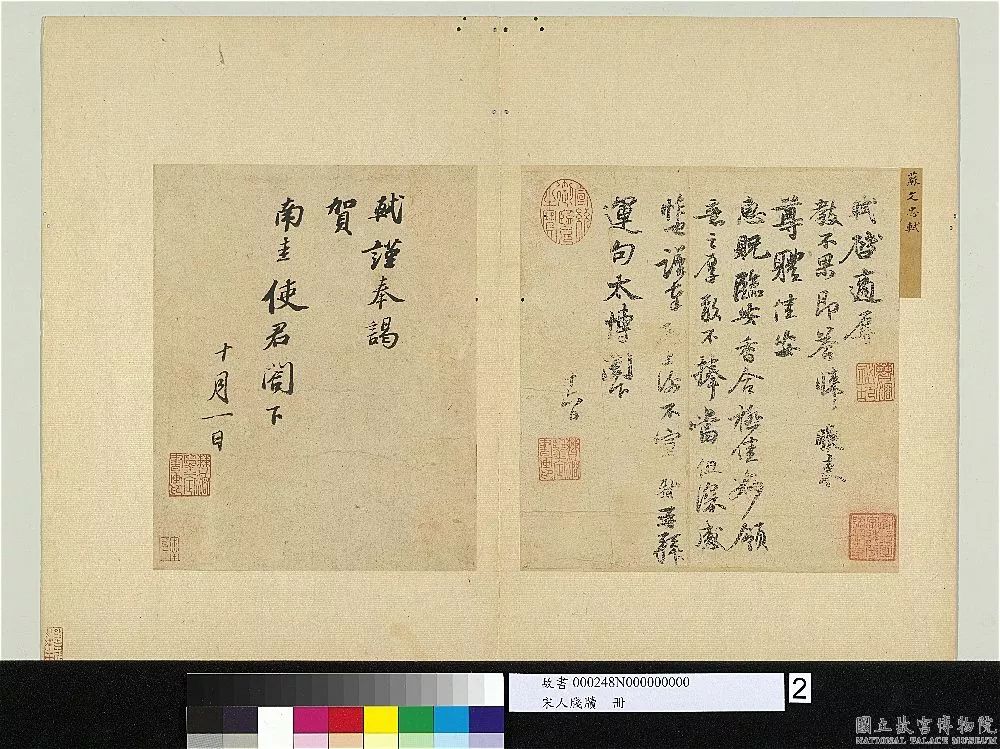 蘇文忠軾
軾啓適辱
教不果即答悚悚
尊體佳安
惠貺臨安香合極佳妙領
意之厚敢不捧當但深感
怍也謹奉 上謝不宣 軾再拜
運句太博閣下
十六日
軾謹奉謁
賀
南圭使君閣下
十月一日
故書 000248N000000000
宋人牋牘 冊
2
國立故宮博物院
NATIONAL PALACE MUSEUM